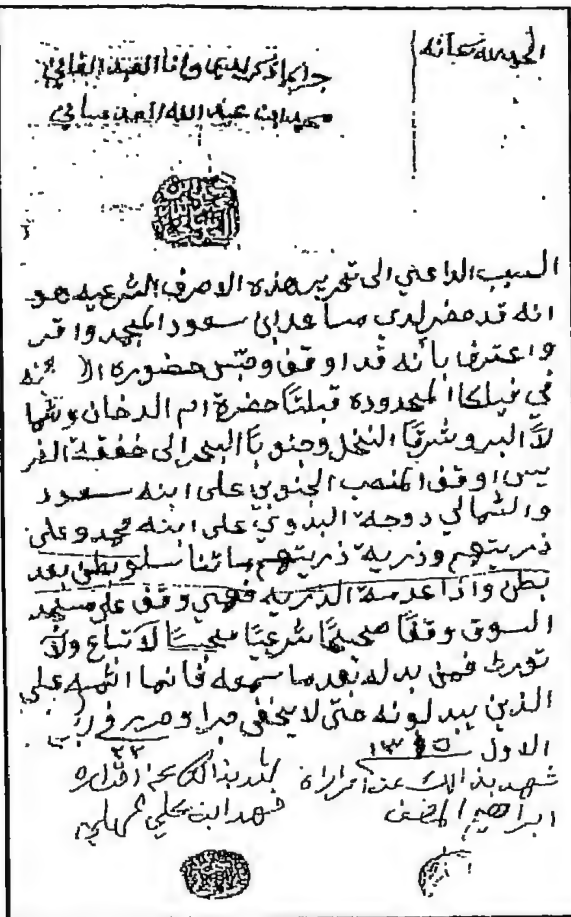 الحمد لله سبحانه
جرا ما ذكر لديا وانا العبد الفاني
محمد ابن عبد الله العدساني
السبب الداعي الى تحرير هذه الاحرف الشرعيه هو
انه قد حضر لدي مساعد ابن سعود المجهد واقر
واعترف بأنه قد اوقف وحبس حضوره
في فيلكا المحدوده قبلتًا حضرة ام الدخان وشما
لًا البر وشرقًا النخل وجنوبًا البحر الى
اوقف المنصب الجنوبي على ابنه سعود
والشمالي دوحة البدوي على ابنه محمد وعلى
ذريتهم وذرية ذريتهم ما تناسلو بطن بعد
بطن واذا عدمة الذريه فهي وقف على مسجد
السوق وقفًا صحيحًا شرعيًا حبيسًا لا تباع ولا
تورث فمن بدله بعد ما سمعه فانما اثمه على
الذين يبدلونه حتى لا يخفى جرا وحرر في ربيع
الاول
شهد بذالك عن اقراره شهد بذالك عن اقراره
ابراهيم المضف فهد ابن علي